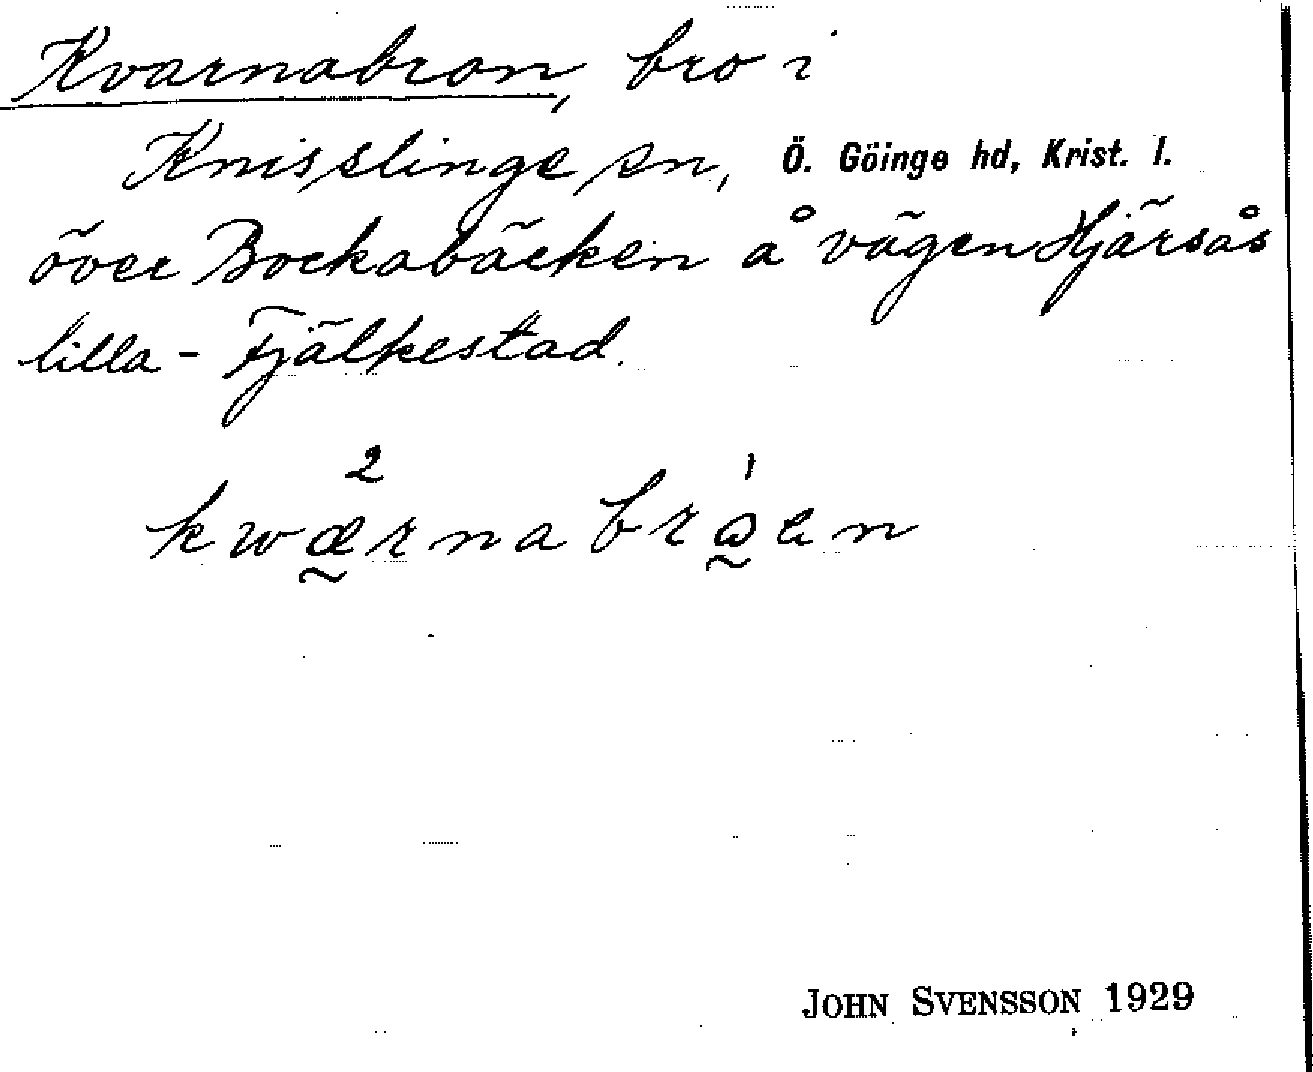 Kvarnabron, bro i
Knisslinge sn, Ö. Göinge hd, Krist. l.
över Bockabäcken å vägen Hjärsås
lilla - Fjälkestad.
2 1
kwærnabrɷen
JOHN SVENSSON 1929